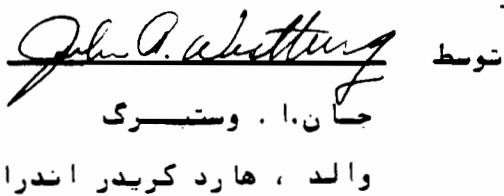 توسط John A. Westberg
جان.ا. وستبرگ
والد ، هارد کریدر اندرا